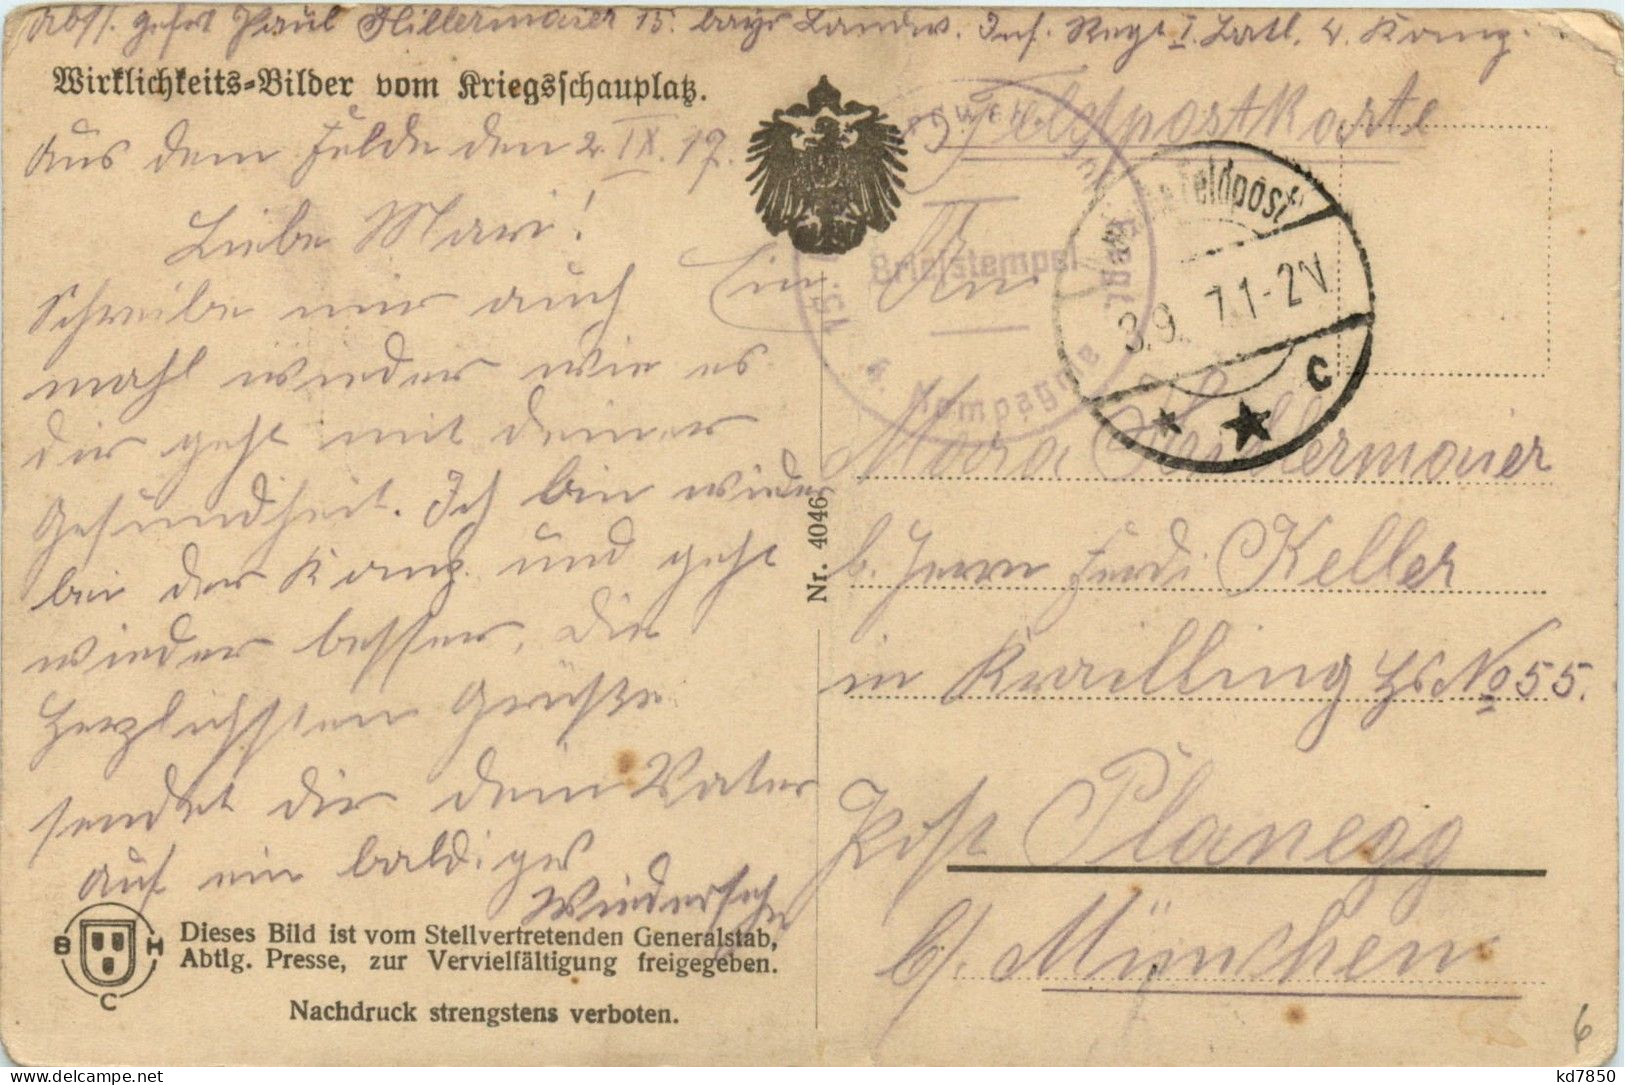 Abs. Gefrt Paul Hillermaier 15. bayr Landw. Inf. Regt I. Batl. 4. Komp.
Wirklichkeits-Bilder vom Kriegsschauplatz.
Feldpostkarte
Aus dem Felde den 2. IX. 17.
Liebe Mari!
Schreibe mir auch Ein
mahl wieder wie es
dir geht mit deiner
Gesundheit. Ich bin wieder
bei der Komp. und geht
wieder besser, die
herzlichsten Grüße
sendet dir dein Vater
auf ein baldiges
Wiedersehn
B H C
Dieses Bild ist vom Stellvertretenden Generalstab,
Abtlg. Presse, zur Vervielfältigung freigegeben.
Nachdruck strengstens verboten.
Nr. 4046
Briefstempel
Kompagnie
Feldpost
3.9. 7.1-2N
c
An
Maria Hillermaier
b. Herrn Ferdi Keller
in Krailling Hs No 55.
Post Planegg
b/. München
6
kd7850